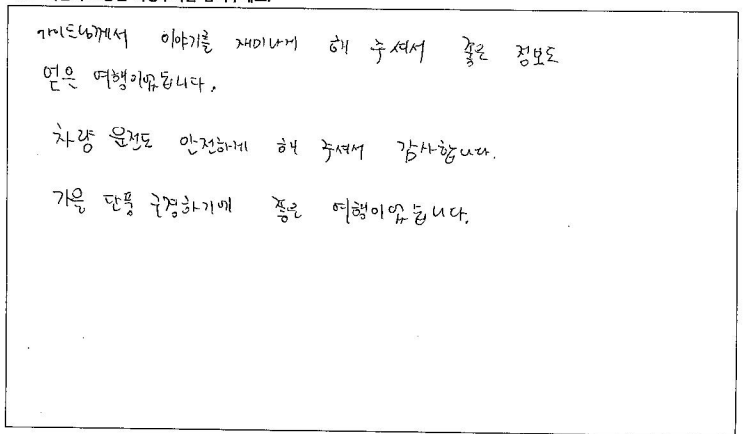 가이드님께서 이야기를 재미나게 해 주셔서 좋은 정보도
얻은 여행이었습니다.
차량 운전도 안전하게 해 주셔서 감사합니다.
가을 단풍 구경하기에 좋은 여행이었습니다.